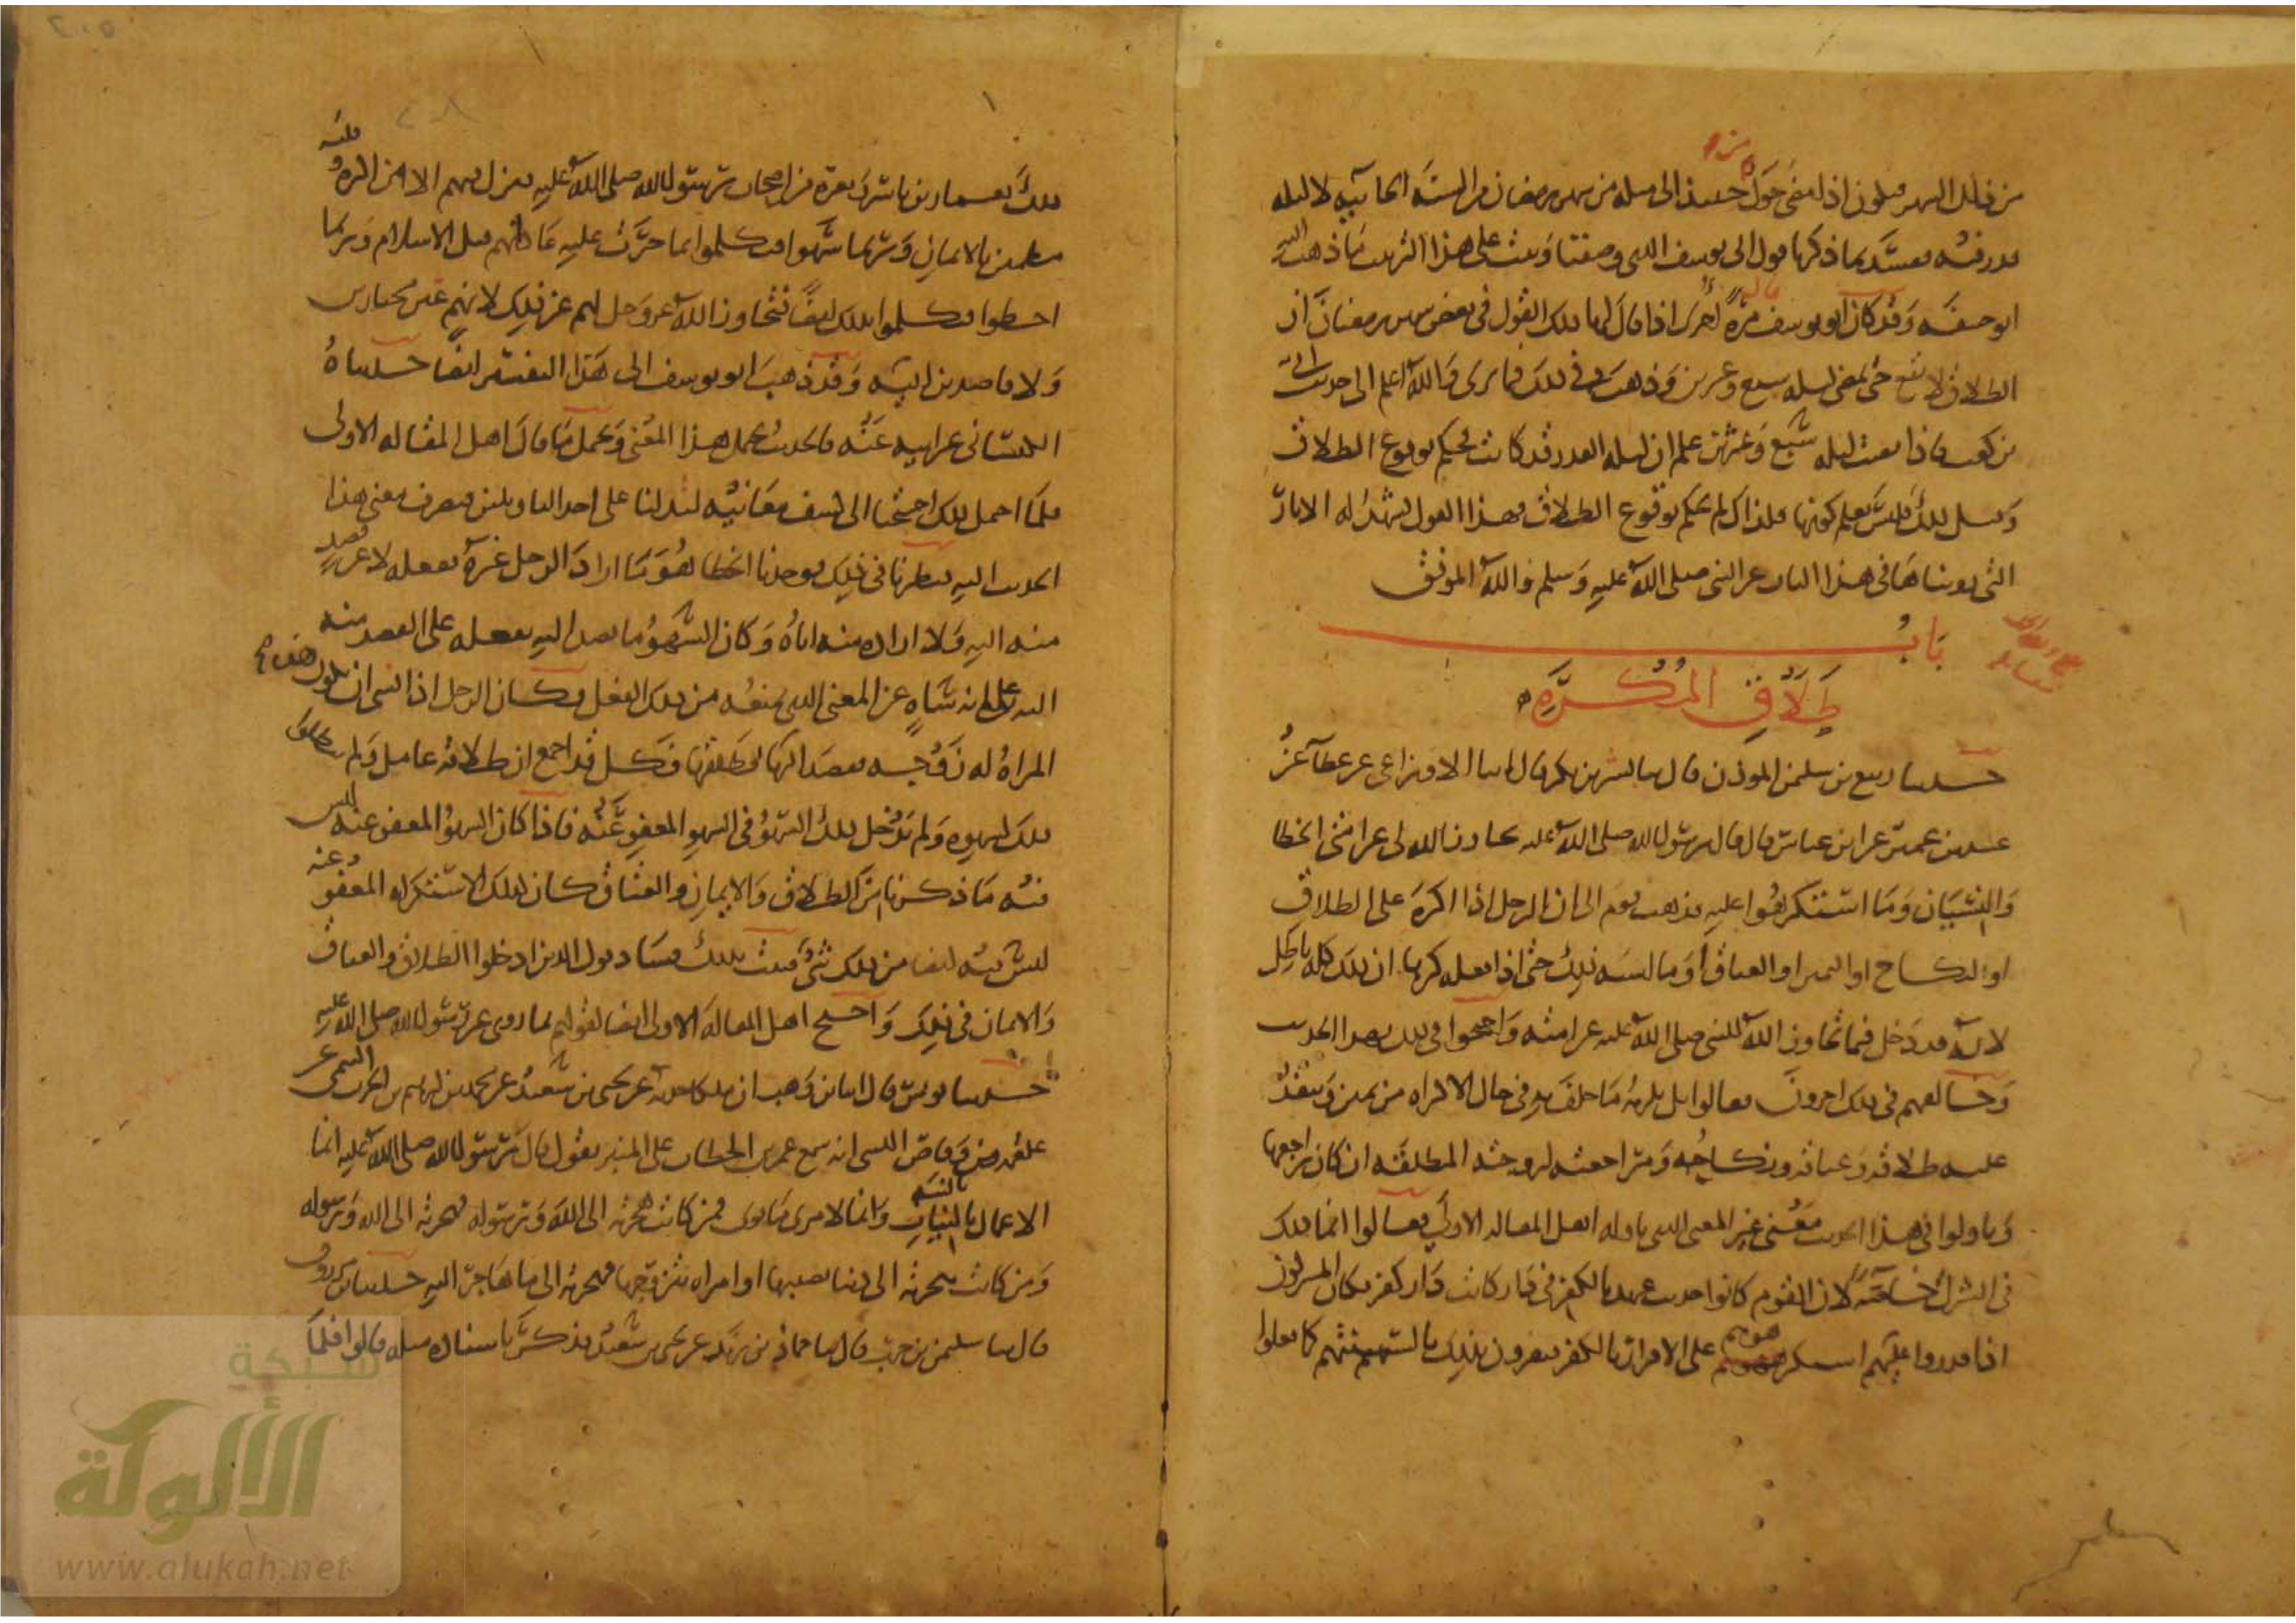 من ذلك الشهر فيكون اذا مضى حول حينئذ الى مثله من شهر رمضان من السنة الجائية لا ليلة
قدر فيه فسد بما ذكرنا قول ابي يوسف الذي وصفنا وثبت على هذا الترتيب ما ذهب اليه
ابو حنيفة وقد كان ابو يوسف قال مرة اخرى اذا قال لها ذلك القول في بعض شهر رمضان ان
الطلاق لا يقع حتى تمضي ليلة سبع وعشرين وذهب في ذلك فيما نرى والله اعلم الى حديث ابي
بن كعب فاذا مضت ليلة سبع وعشرين علم ان ليلة القدر قد كانت فحكم بوقوع الطلاق
وقبل ذلك فليس يعلم كونها فلذلك لم يحكم بوقوع الطلاق فهذا القول يشهد له الاثار
التي رويناها في هذا الباب عن النبي صلى الله عليه وسلم والله الموفق
باب
طلاق المكره
حدثنا ربيع بن سليمن الموذن قال ثنا بشر بن بكر قال اخبرنا الاوزاعي عن عطاء عن
عبيد بن عمير عن ابن عباس قال قال رسول الله صلى الله عليه تجاوز الله لي عن امتي الخطا
والنسيان وما استكرهوا عليه فذهب قوم الى ان الرجل اذا اكره على الطلاق
او النكاح او اليمين او العتاق او ما اشبه ذلك حتى اذا فعله كرها ان ذلك كله باطل
لانه قد دخل فيما تجاوز الله للنبي صلى الله عليه عن امته واحتجوا في ذلك بهذا الحديث
وخالفهم في ذلك اخرون فقالوا بل يلزمه ما حلف به في حال الاكراه من يمين وينفذ
عليه طلاقه وعتاقه ونكاحه ومراجعته لزوجته المطلقة ان كان راجعها
وتاولوا في هذا الحديث معنى غير المعنى الذي تاوله اهل المقالة الاولى فقالوا انما ذلك
في الشرك خاصة لان القوم كانوا حديث عهد بالكفر في دار كانت دار كفر فكان المشركون
اذا قدروا عليهم استكرهوهم على الاقرار بالكفر فيقرون بذلك بالسنتهم كما فعلوا
ذلك بعمار بن ياسر وبغيره من اصحاب رسول الله صلى الله عليه فنزل فيهم الا من اكره وقلبه
مطمئن بالايمان وربما سهوا فتكلموا بما جرت عليه عادتهم قبل الاسلام وربما
اخطوا فتكلموا بذلك ايضا فتجاوز الله عز وجل لهم عن ذلك لانهم غير مختارين
ولا قاصدين اليه وقد ذهب ابو يوسف الى هذا التفسير ايضا حدثناه
الكيساني عن ابيه عنه فالحديث يحتمل هذا المعنى ويحتمل ما قال اهل المقالة الاولى
فلما احتمل ذلك احتجنا الى كشف معانيه ليدلنا على احد التاويلين فنصرف معنى هذا
الحديث اليه فنظرنا في ذلك فوجدنا الخطا هو ما اراد الرجل غيره ففعله لا عن قصد
منه اليه ولا ارادة منه اياه وكان السهو ما قصد اليه ففعله على القصد منه
اليه على انه ساه عن المعنى الذي يمنعه من ذلك الفعل فكان الرجل اذا نسي ان تكون هذه
المراة له زوجة فقصد اليها فطلقها فكل قد اجمع ان طلاقه عامل ولم يبطلوا
ذلك لسهوه ولم يدخل ذلك السهو في السهو المعفو عنه فاذا كان السهو المعفو عنه ليس
فيه ما ذكرنا من الطلاق والايمان والعتاق كان كذلك الاستكراه المعفو عنه
ليس فيه ايضا من ذلك شي فثبت بذلك فساد قول الذين ادخلوا الطلاق والعتاق
والايمان في ذلك واحتج اهل المقالة الاولى ايضا لقولهم بما روي عن رسول الله صلى الله عليه
حدثنا يونس قال انا ابن وهب ان ملكا حدثه عن يحيى بن سعيد عن محمد بن ابرهيم بن الحرث التيمي عن
علقمة بن وقاص الليثي انه سمع عمر بن الخطاب على المنبر يقول قال رسول الله صلى الله عليه انما
الاعمال بالنيات بالنية وانما لامرئ ما نوى فمن كانت هجرته الى الله ورسوله فهجرته الى الله ورسوله
ومن كانت هجرته الى دنيا يصيبها او امراة يتزوجها فهجرته الى ما هاجر اليه حدثنا ابن مرزوق
قال ثنا سليمن بن حرب قال ثنا حماد بن زيد عن يحيى بن سعيد فذكر باسناده مثله قالوا فلما
شبكة
الألوكة
www.alukah.net